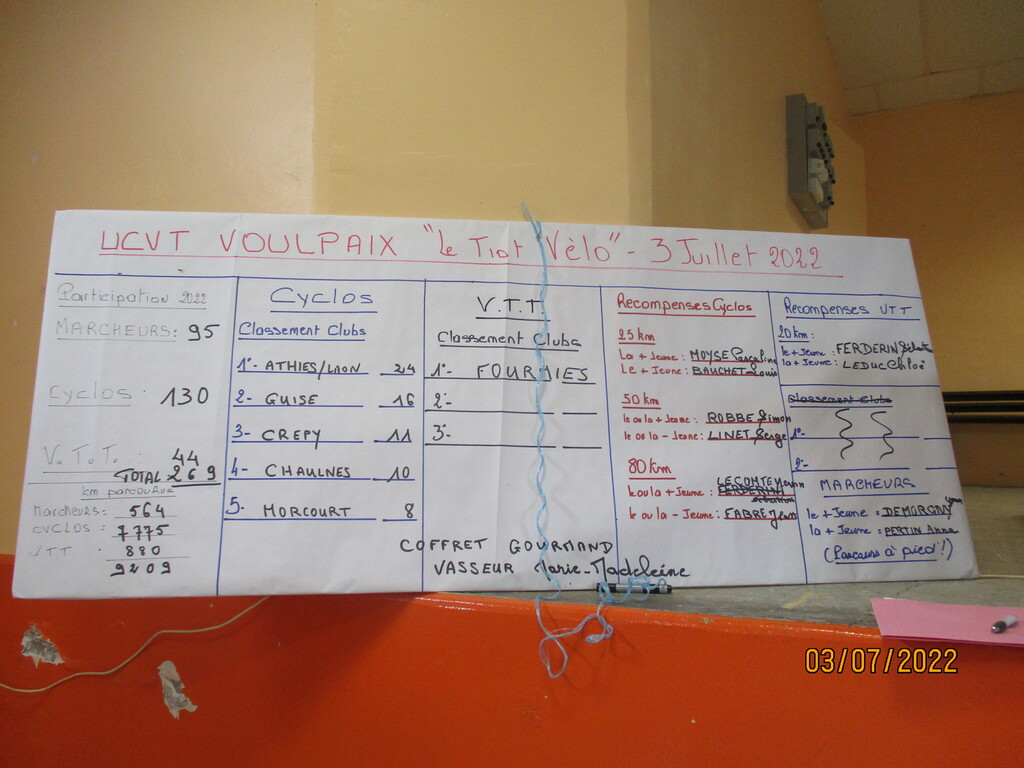 UCVT VOULPAIX "Le Tiot Vélo" - 3 Juillet 2022
Participation 2022
MARCHEURS: 95
Cyclos : 130
V.T.T. 44
TOTAL 269
km parcourus
Marcheurs = 564
CYCLOS = 7775
VTT : 880
9209
Cyclos
Classement Clubs
1°- ATHIES/LAON 24
2- GUISE 16
3- CREPY 11
4- CHAULNES 10
5- MORCOURT 8
V.T.T.
Classement Clubs
1°- FOURMIES
2°-
3°-
COFFRET GOURMAND
VASSEUR Marie-Madeleine
Recompenses Cyclos
25 km
La + Jeune : MOYSE Pascaline
Le + Jeune : BAUCHET Louis
50 km
le ou la + Jeune : ROBBE Simon
le ou la - Jeune : LINET Serge
80 km
LECOMTE
le ou la + Jeune : FERDERIN
le ou la - Jeune : FABRE Jean
Recompenses VTT
20 km :
le + Jeune : FERDERIN
la + Jeune : LEDUC Chloé
Classement Clubs
1°-
2°-
MARCHEURS
le + Jeune = DEMORGNY
la + Jeune = PERTIN Anna
(Parcours à pied!)
03/07/2022